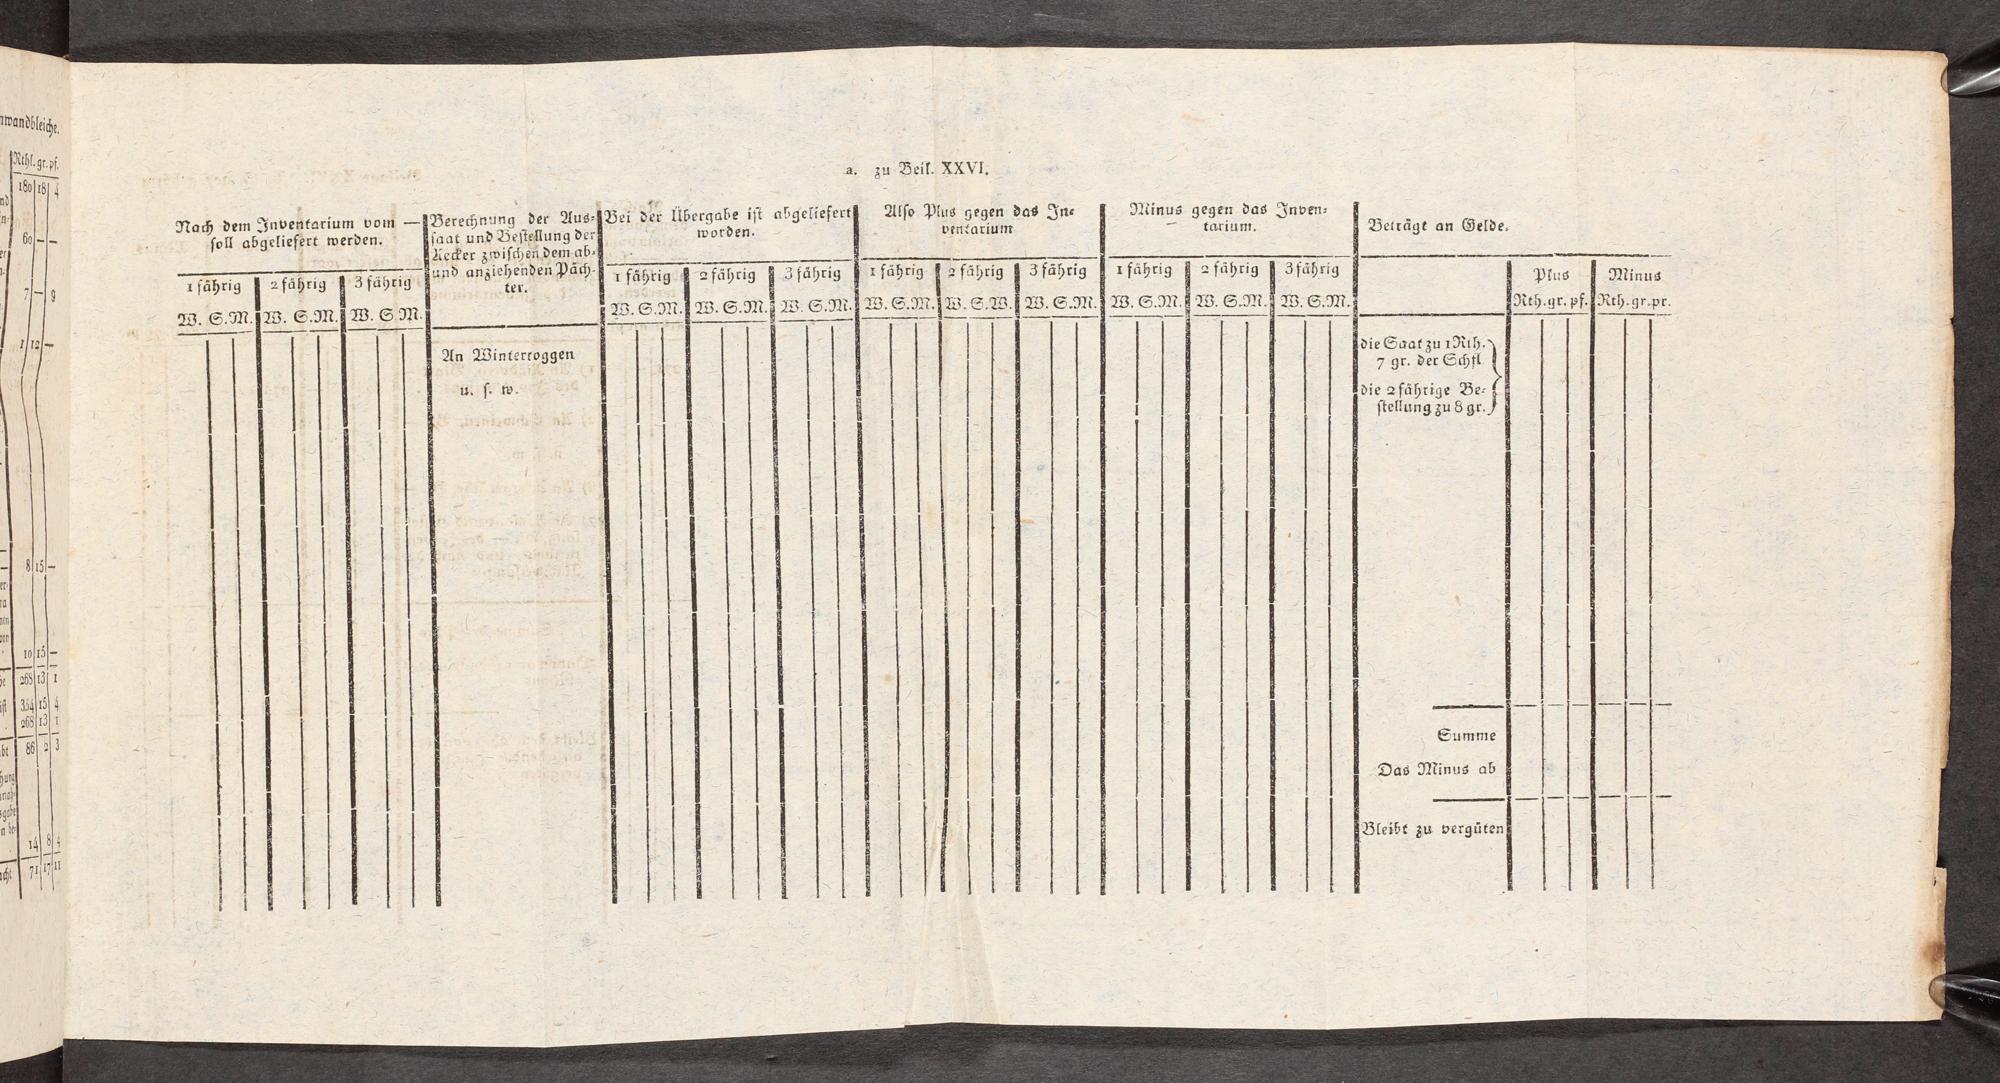 nwandbleiche.
Rthl. gr. pf.
180 18 4
60 — —
7 — 9
1 12 —
8 15 —
10 15 —
268 13 1
354 15 4
268 13 1
86 2 3
14 8 4
71 17 11
a. zu Beil. XXVI.
Nach dem Inventarium vom —
soll abgeliefert werden.
1 jährig 2 jährig 3 jährig
W. S. M. W. S. M. W. S. M.
Berechnung der Aus-
saat und Bestellung der
Aecker zwischen dem ab-
und anziehenden Päch-
ter.
An Winterroggen
u. s. w.
Bei der Übergabe ist abgeliefert
worden.
1 jährig 2 jährig 3 jährig
W. S. M. W. S. M. W. S. M.
Also Plus gegen das In-
ventarium
1 jährig 2 jährig 3 jährig
W. S. M. W. S. W. W. S. M.
Minus gegen das Inven-
tarium.
1 jährig 2 jährig 3 jährig
W. S. M. W. S. M. W. S. M.
Beträgt an Gelde.
Plus Minus
Rth. gr. pf. Rth. gr. pr.
die Saat zu 1 Rth.
7 gr. der Schfl
die 2 jährige Be-
stellung zu 8 gr.
Summe
Das Minus ab
Bleibt zu vergüten